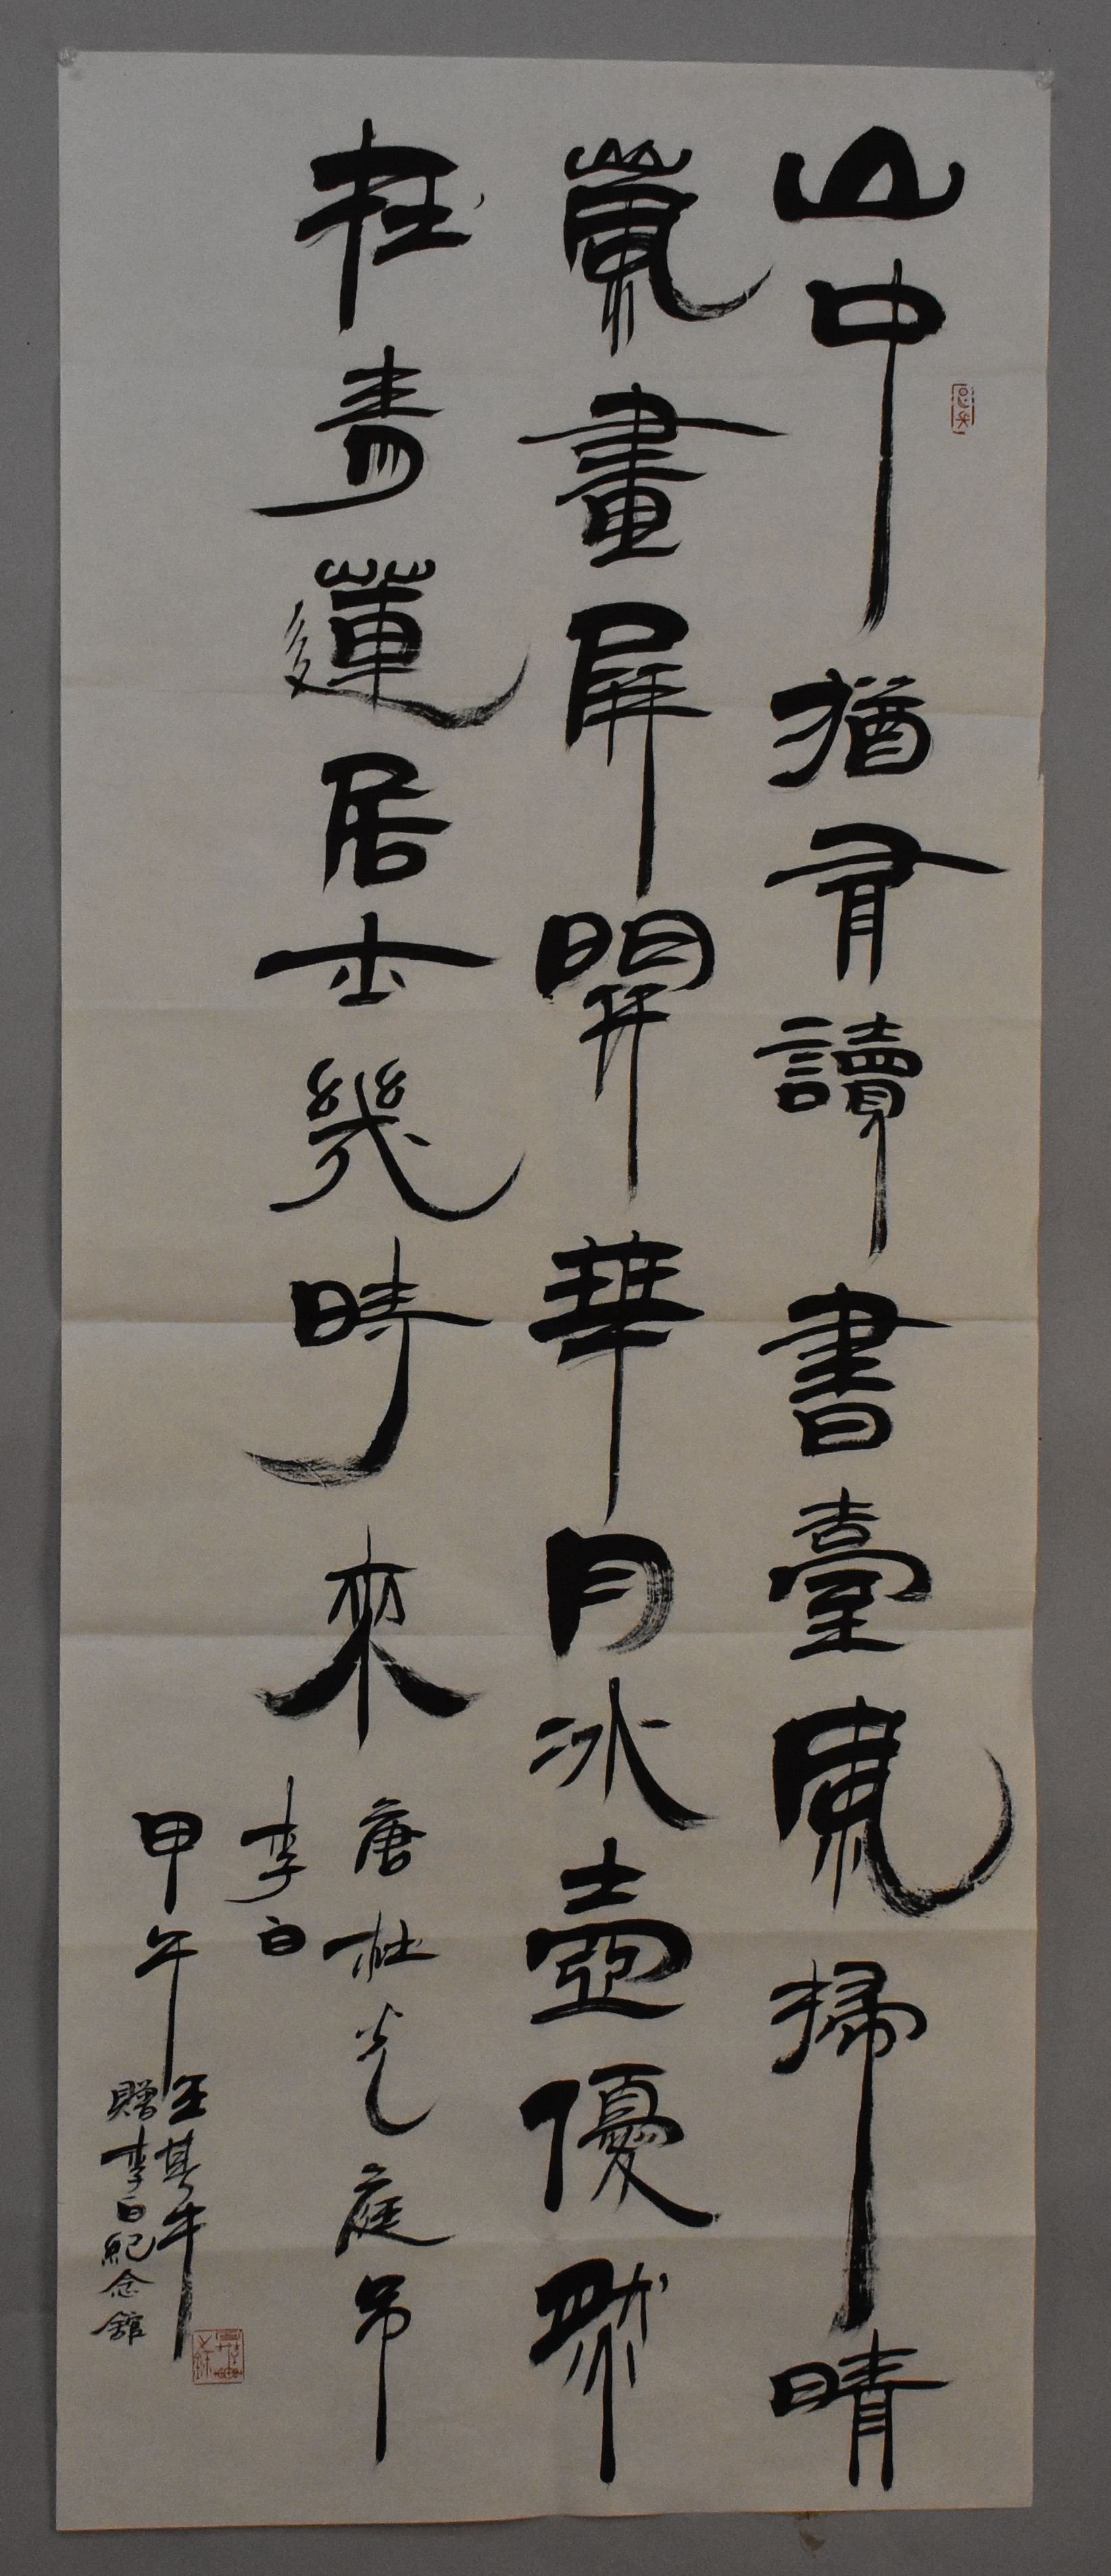 山中猶有讀書臺風掃晴
嵐畫屏開華月冰壺優然
在青蓮居士幾時來唐杜光庭吊
李白
甲午王
贈李白紀念館